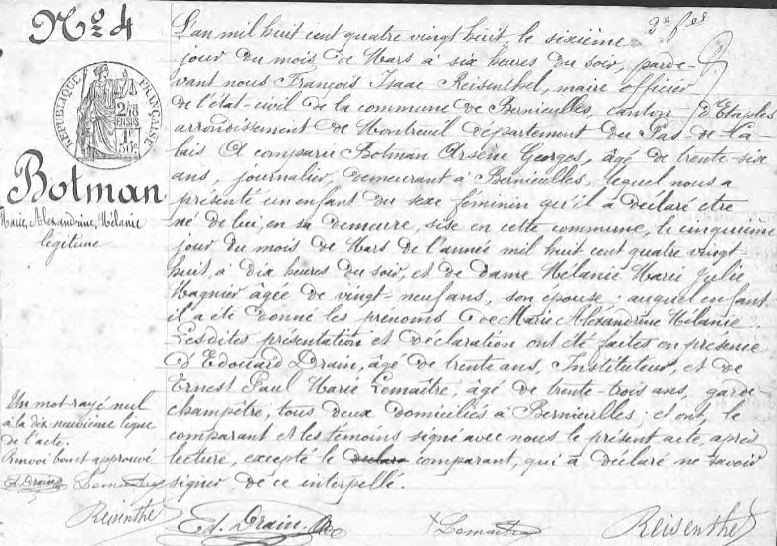 N° 4
2e fes
RÉPUBLIQUE FRANÇAISE
2/10
EN SUS
1F
50c
Botman
Marie, Alexandrine, Mélanie
légitime
L'an mil huit cent quatre vingt huit, le sixième
jour du mois de Mars à six heures du soir, parde-
vant nous François Isaac Reisenthel, maire officier
de l'état-civil de la commune de Bernieulles, canton d'Etaples
arrondissement de Montreuil département du Pas de Ca-
lais A comparu Botman Arsène Georges, âgé de trente-six
ans, journalier, demeurant à Bernieulles, lequel nous a
présenté un enfant du sexe féminin qu'il a déclaré être
né de lui, en sa demeure, sise en cette commune, le cinquième
jour du mois de Mars de l'année mil huit cent quatre vingt
huit, à dix heures du soir, et de dame Mélanie Marie Julie
Magnier âgée de vingt-neuf ans, son épouse; auquel enfant
il a été donné les prénoms de Marie Alexandrine Mélanie.
Lesdites présentation et déclaration ont été faites en présence
d'Edouard Drain, âgé de trente ans, Instituteur, et de
Ernest Paul Marie Lemaître, âgé de trente-trois ans, garde-
champêtre, tous deux domiciliés à Bernieulles; et ont, le
comparant et les témoins signé avec nous le présent acte, après
lecture, excepté le déclara comparant, qui a déclaré ne savoir
signer de ce interpellé.
Un mot rayé nul
à la dix-neuvième ligne
de l'acte.
Renvoi bon et approuvé
Ed. Drain Lemaître
Reisenthel
Ed. Drain
Lemaître
Reisenthel